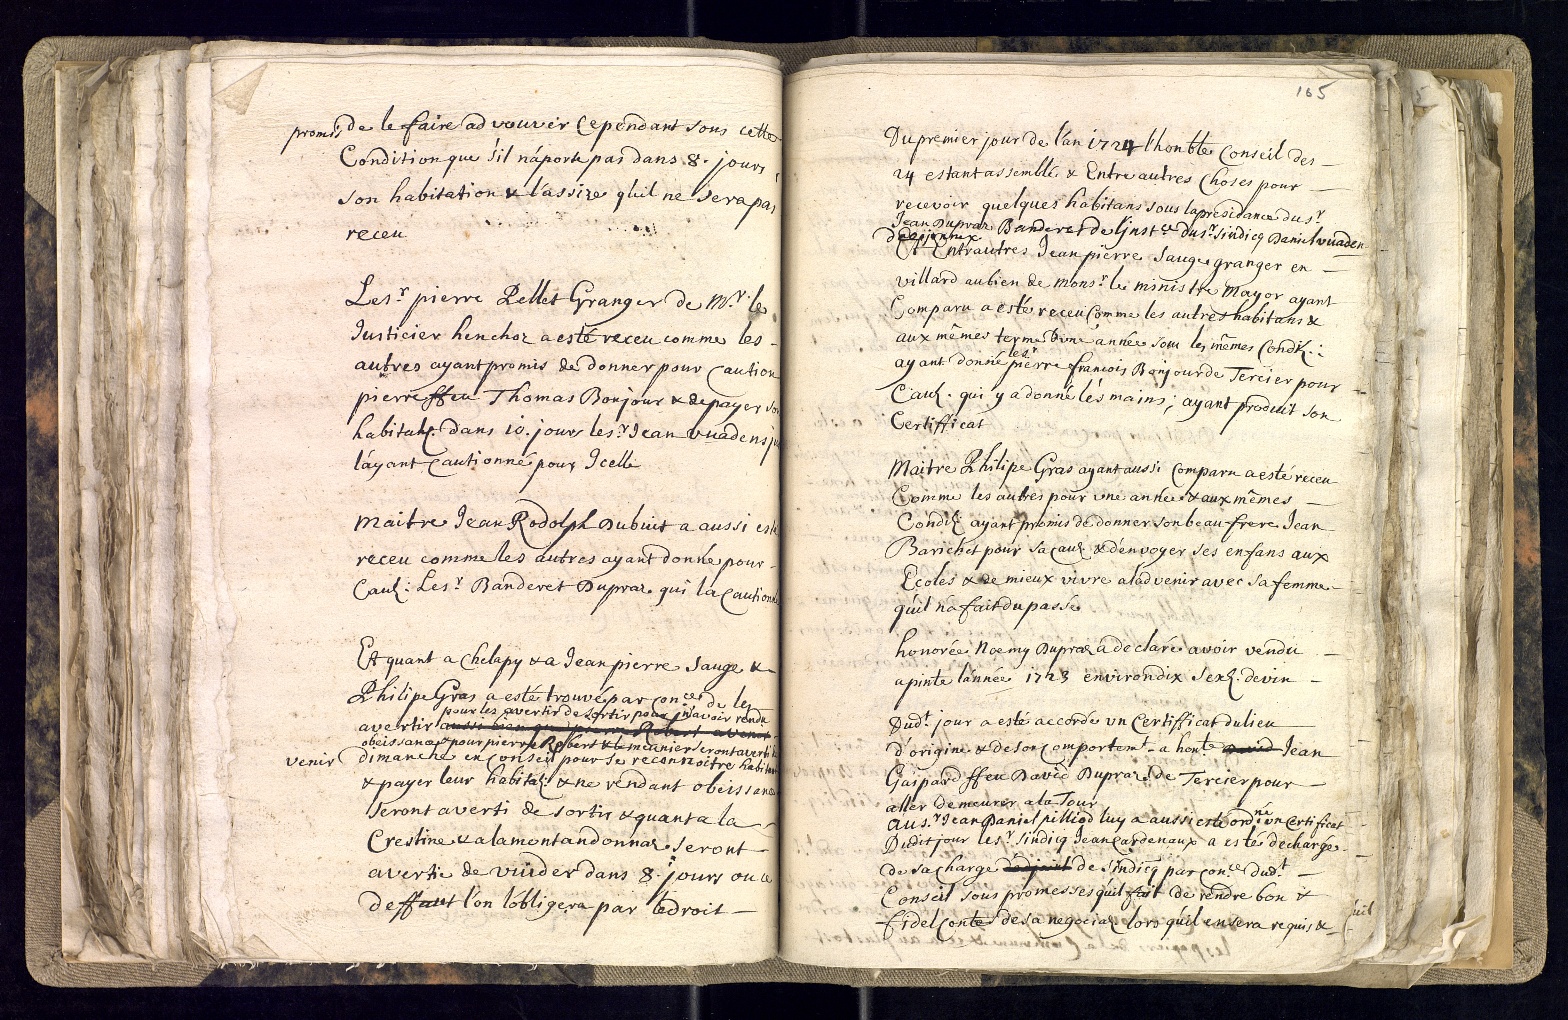 promis de le faire advouvir Cependant sous cette
Condition que s'il n'aporte pas dans 8. jours
son habitation & l'assize qu'il ne sera pas
receu
Le sr pierre Pellet Granger de Mr. le
Justicier henchoz a esté receu comme les
autres ayant promis de donner pour Caution
pierre ffeu Thomas Bonjour & de payer son
habitaõn dans 10. jours le sr Jean vuadens
l'ayant Cautionné pour Icelle
Maitre Jean Rodolph Dubuit a aussi esté
receu comme les autres ayant donné pour
Cauõ: Le sr Banderet Dupraz qui la Cautionné
Et quant a Chelapy & a Jean pierre Sauge &
Philipe Gras a esté trouvé par Conces de les
pour les avertir de sortir pour n'avoir rendu
avertir aussi bien que pierre Robert a venir
obeissance & pour pierre Robert & le meanier seront averti de
venir dimanche en Conseil pour se reconnoitre habitans
& payer leur habitaõn & ne rendant obeissance
seront averti de sortir & quant a la
Crestine & a la montandonnaz seront
avertie de vuider dans 8 jours ou a
deffaut l'on l'obligera par le droit
165
Du premier jour de l'an 1724 l'honble Conseil des
24 estant assemblé & Entre autres Choses pour
recevoir quelques habitans sous la presidance du sr
Jean Dupraz Banderet de l'jnstce du sr. sindiq Daniel vuaden
Et Entrautres Jean pierre Sauge granger en
villard au bien de monsr. le ministre Mayor ayant
Comparu a esté receu Comme les autres habitans &
aux mêmes terme d'une année sous les mêmes Condiõ:
ayant donné le sr pierre françois Bonjour de Tercier pour
Cauõ. qui y a donné les mains; ayant produit son
Certifficat
Maitre Philipe Gras ayant aussi Comparu a esté receu
Comme les autres pour une année & aux mêmes
Condiõ ayant promis de donner son beau frere Jean
Barichet pour sa cauõ & d'envoyer ses enfans aux
Ecoles & de mieux vivre a ladvenir avec sa femme
qu'il n'a fait du passé
honorée Noemy Dupraz a declaré avoir vendu
a pinte l'année 1723 environ dix Sex. de vin
Dudt jour a esté accordé un Certifficat du lieu
d'origine & de son Comportemt. a honte david Jean
Gaispard ffeu David Dupraz de Tercier pour
aller demeurer a la Tour
Au sr Jean Daniel pilliod luy a aussi esté ordonné un Certifficat
Dudit jour le sr. sindiq Jean Cardenaux a esté décharge
de sa charge de sindiq par Conce. dudt
Conseil sous promesses quil fait de rendre bon &
fidel Conte de sa negociaõ lors qu'il en sera requis &